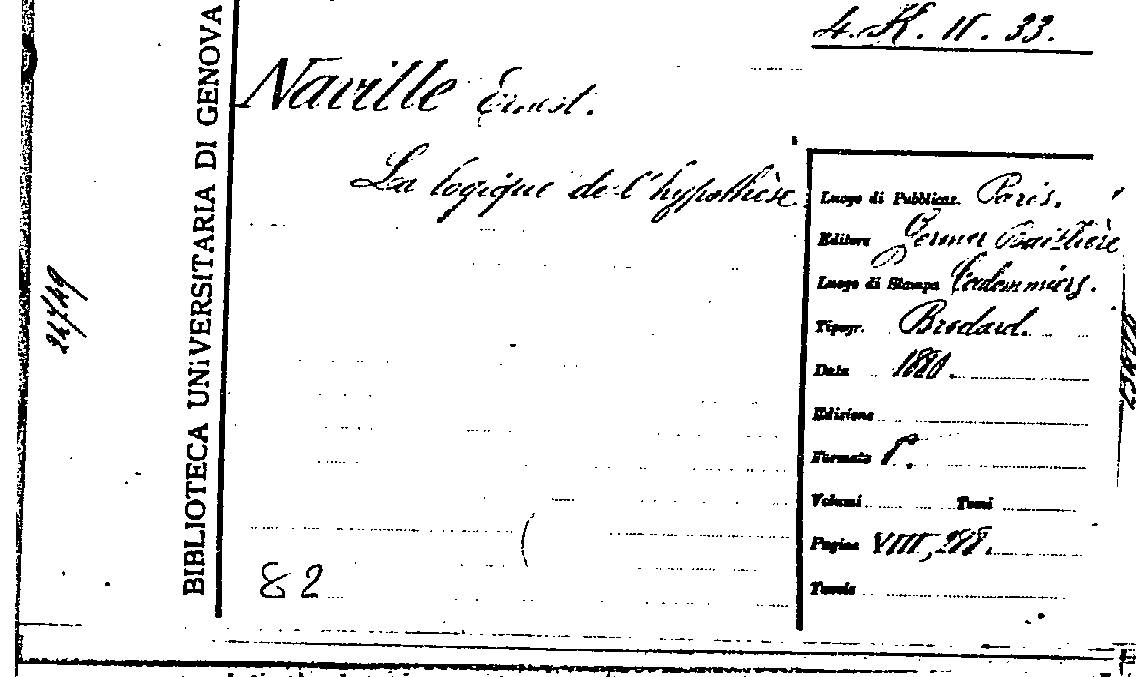 4. K. II. 33.
Naville Ernest.
La logique de l'hypothèse
BIBLIOTECA UNIVERSITARIA DI GENOVA
Luogo di Pubblicaz. Paris.
Editore Germer Baillière
Luogo di Stampa Coulommiers.
Tipogr. Brodard.
Data 1880.
Edizione
Formato 8°.
Volumi Tomi
Pagine VIII, 278.
Tavole
82